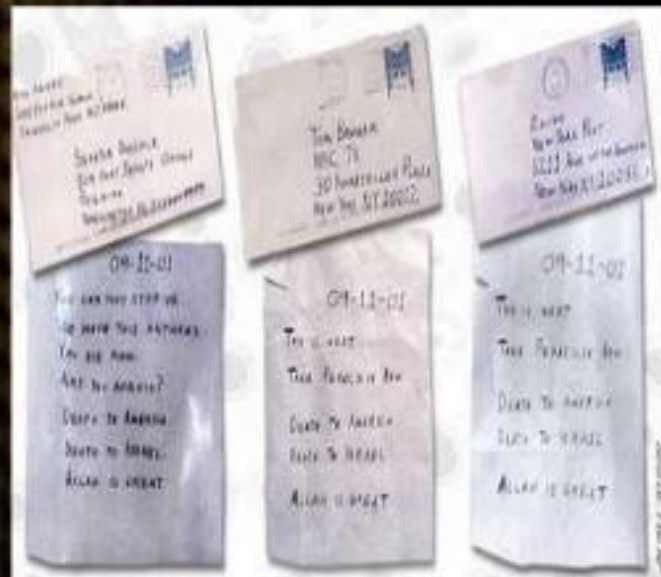 4th Grade
Greendale School
Franklin Park NJ 08852
Senator Daschle
509 Hart Senate Office
Building
Washington
Tom Brokaw
NBC TV
30 Rockefeller Plaza
New York NY 10112
Editor
New York Post
1211 Ave. of the Americas
New York NY 10036
09-11-01
You can not stop us.
We have this anthrax.
You die now.
Are you afraid?
Death to America.
Death to Israel.
Allah is great.
09-11-01
This is next
Take Penacilin now
Death to America
Death to Israel
Allah is great
09-11-01
This is next
Take Penacilin now
Death to America
Death to Israel
Allah is great